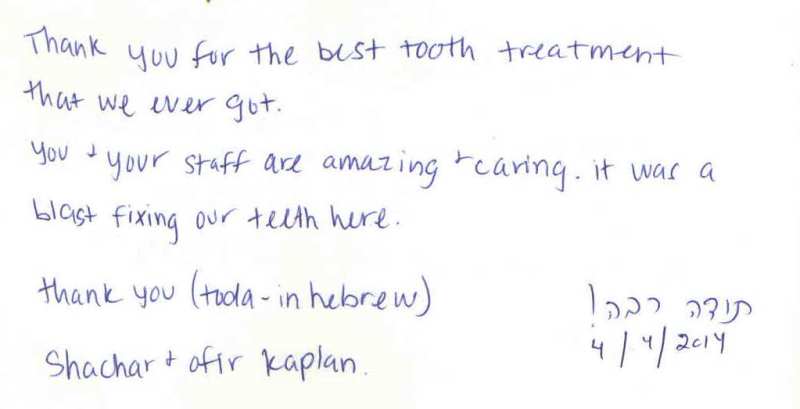 Thank you for the best tooth treatment
that we ever got.
you + your staff are amazing + caring. it was a
blast fixing our teeth here.
thank you (toda - in hebrew)
תודה רבה!
Shachar + ofir kaplan.
4/4/2014